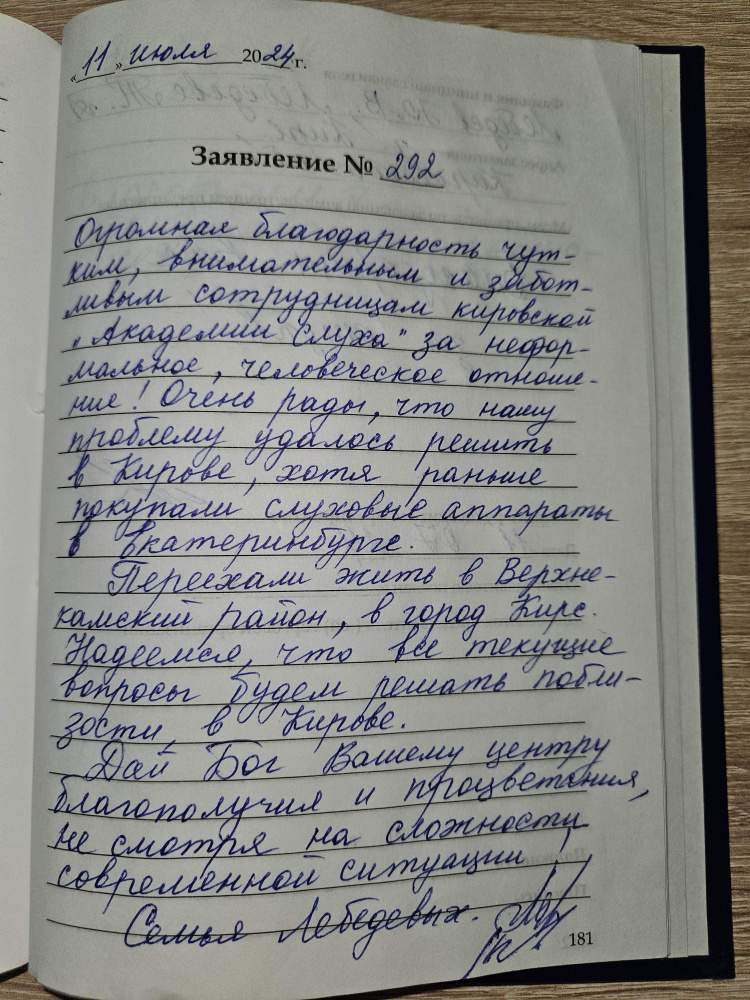 «11» июля 2024 г.
Заявление № 292
Огромная благодарность чут-
ким, внимательным и забот-
ливым сотрудницам кировской
„Академии слуха" за нефор-
мальное, человеческое отноше-
ние! Очень рады, что нашу
проблему удалось решить
в Кирове, хотя раньше
покупали слуховые аппараты
в Екатеринбурге.
Переехали жить в Верхне-
камский район, в город Кирс.
Надеемся, что все текущие
вопросы будем решать побли-
зости, в Кирове.
Дай Бог Вашему центру
благополучия и процветания,
не смотря на сложности
современной ситуации!
Семья Лебедевых.
181